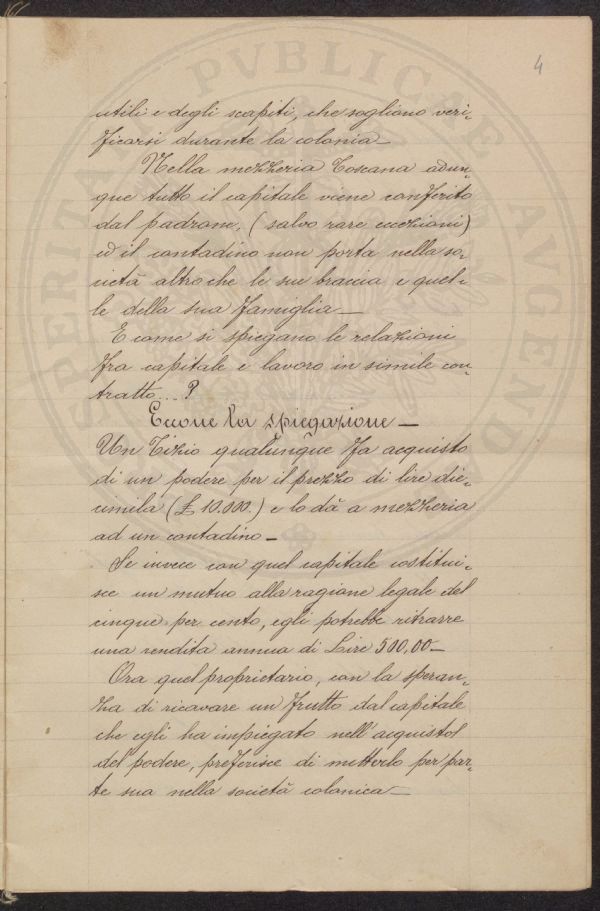 4
utili e degli scapiti, che sogliono veri-
ficarsi durante la colonia_
Nella mezzeria Toscana adun-
que tutto il capitale viene conferito
dal padrone, (salvo rare eccezioni)
ed il contadino non porta nella so-
cietà altro che le sue braccia e quel-
le della sua famiglia_
E come si spiegano le relazioni
fra capitale e lavoro in simile con-
tratto...?
Eccone la spiegazione_
Un Tizio qualunque fa acquisto
di un podere per il prezzo di lire die-
cimila (£ 10.000.) e lo dà a mezzeria
ad un contadino_
Se invece con quel capitale costitui-
sce un mutuo alla ragione legale del
cinque per cento, egli potrebbe ritrarre
una rendita annua di Lire 500,00_
Ora quel proprietario, con la speran-
za di ricavare un frutto dal capitale
che egli ha impiegato nell'acquisto
del podere, preferisce di metterlo per par-
te sua nella società colonica_